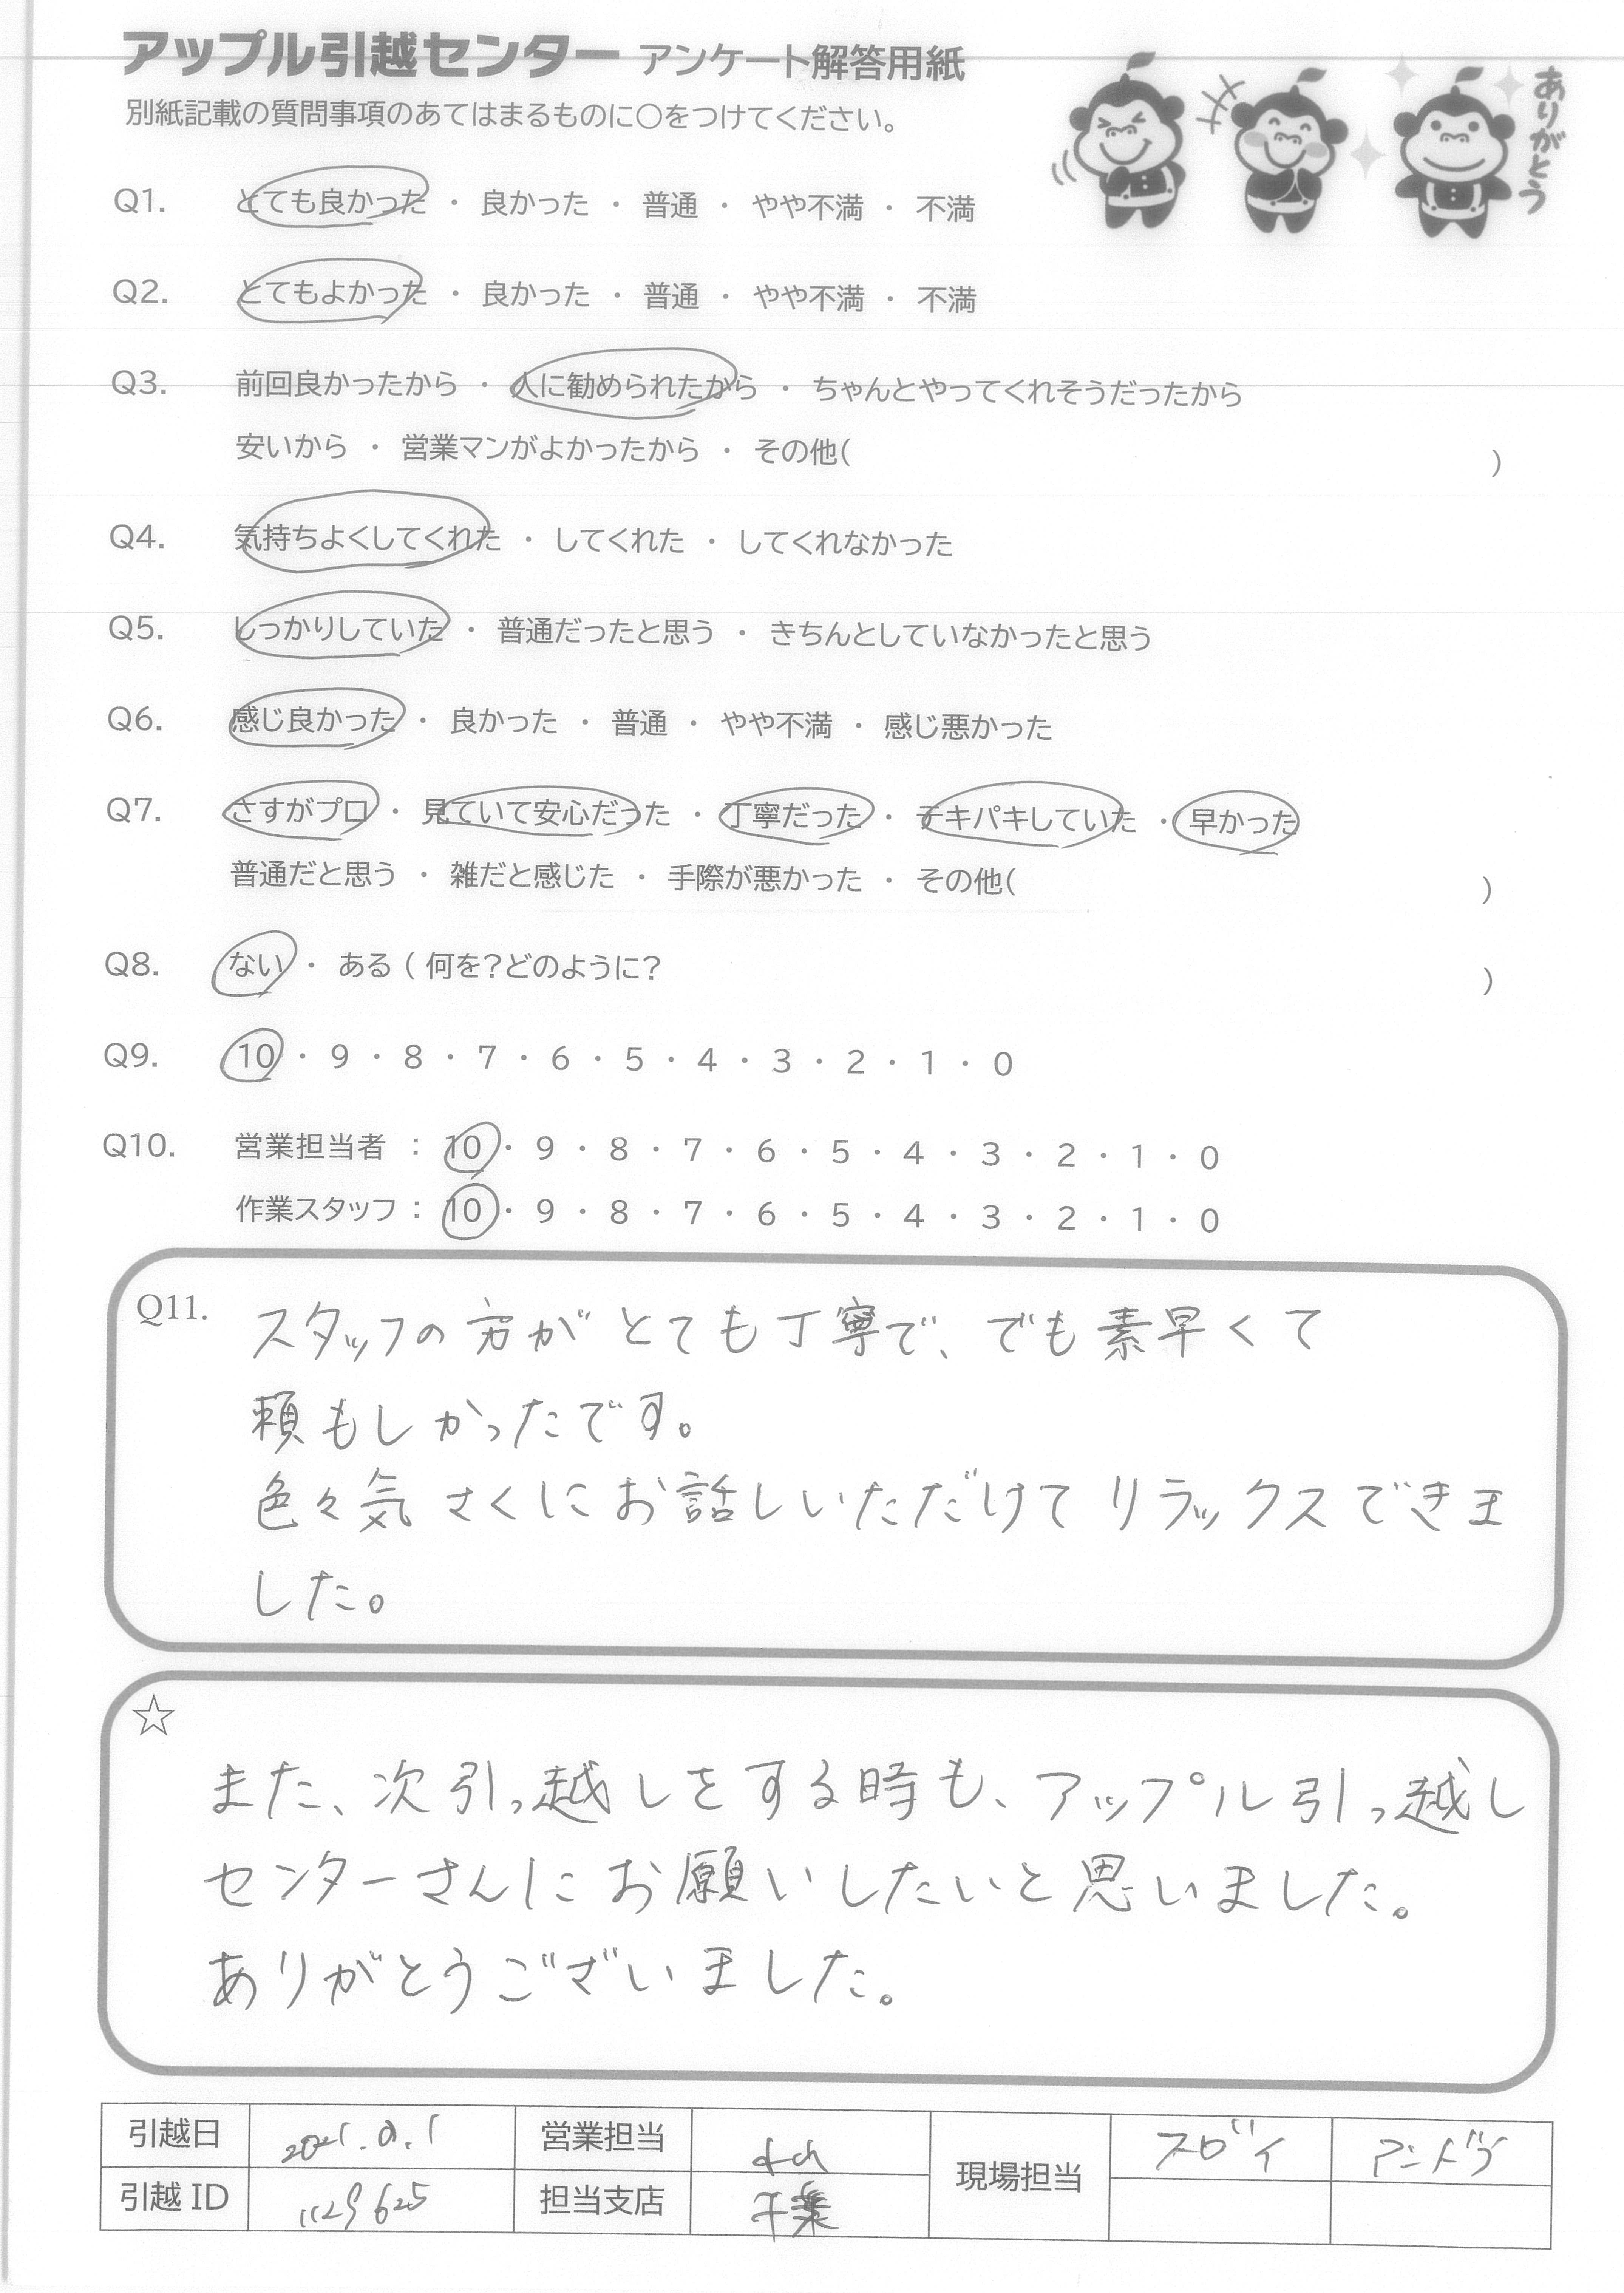 アップル引越センター アンケート解答用紙
別紙記載の質問事項のあてはまるものに○をつけてください。
ありがとう
Q1. とても良かった ・ 良かった ・ 普通 ・ やや不満 ・ 不満
Q2. とてもよかった ・ 良かった ・ 普通 ・ やや不満 ・ 不満
Q3. 前回良かったから ・ 人に勧められたから ・ ちゃんとやってくれそうだったから
安いから ・ 営業マンがよかったから ・ その他( )
Q4. 気持ちよくしてくれた ・ してくれた ・ してくれなかった
Q5. しっかりしていた ・ 普通だったと思う ・ きちんとしていなかったと思う
Q6. 感じ良かった ・ 良かった ・ 普通 ・ やや不満 ・ 感じ悪かった
Q7. さすがプロ ・ 見ていて安心だった ・ 丁寧だった ・ テキパキしていた ・ 早かった
普通だと思う ・ 雑だと感じた ・ 手際が悪かった ・ その他( )
Q8. ない ・ ある ( 何を?どのように? )
Q9. 10 ・ 9 ・ 8 ・ 7 ・ 6 ・ 5 ・ 4 ・ 3 ・ 2 ・ 1 ・ 0
Q10. 営業担当者 : 10 ・ 9 ・ 8 ・ 7 ・ 6 ・ 5 ・ 4 ・ 3 ・ 2 ・ 1 ・ 0
作業スタッフ : 10 ・ 9 ・ 8 ・ 7 ・ 6 ・ 5 ・ 4 ・ 3 ・ 2 ・ 1 ・ 0
Q11. スタッフの方がとても丁寧で、でも素早くて
頼もしかったです。
色々気さくにお話しいただけてリラックスできま
した。
☆
また、次引っ越しをする時も、アップル引っ越し
センターさんにお願いしたいと思いました。
ありがとうございました。
引越日 営業担当 現場担当
引越 ID 1129625 担当支店 千葉